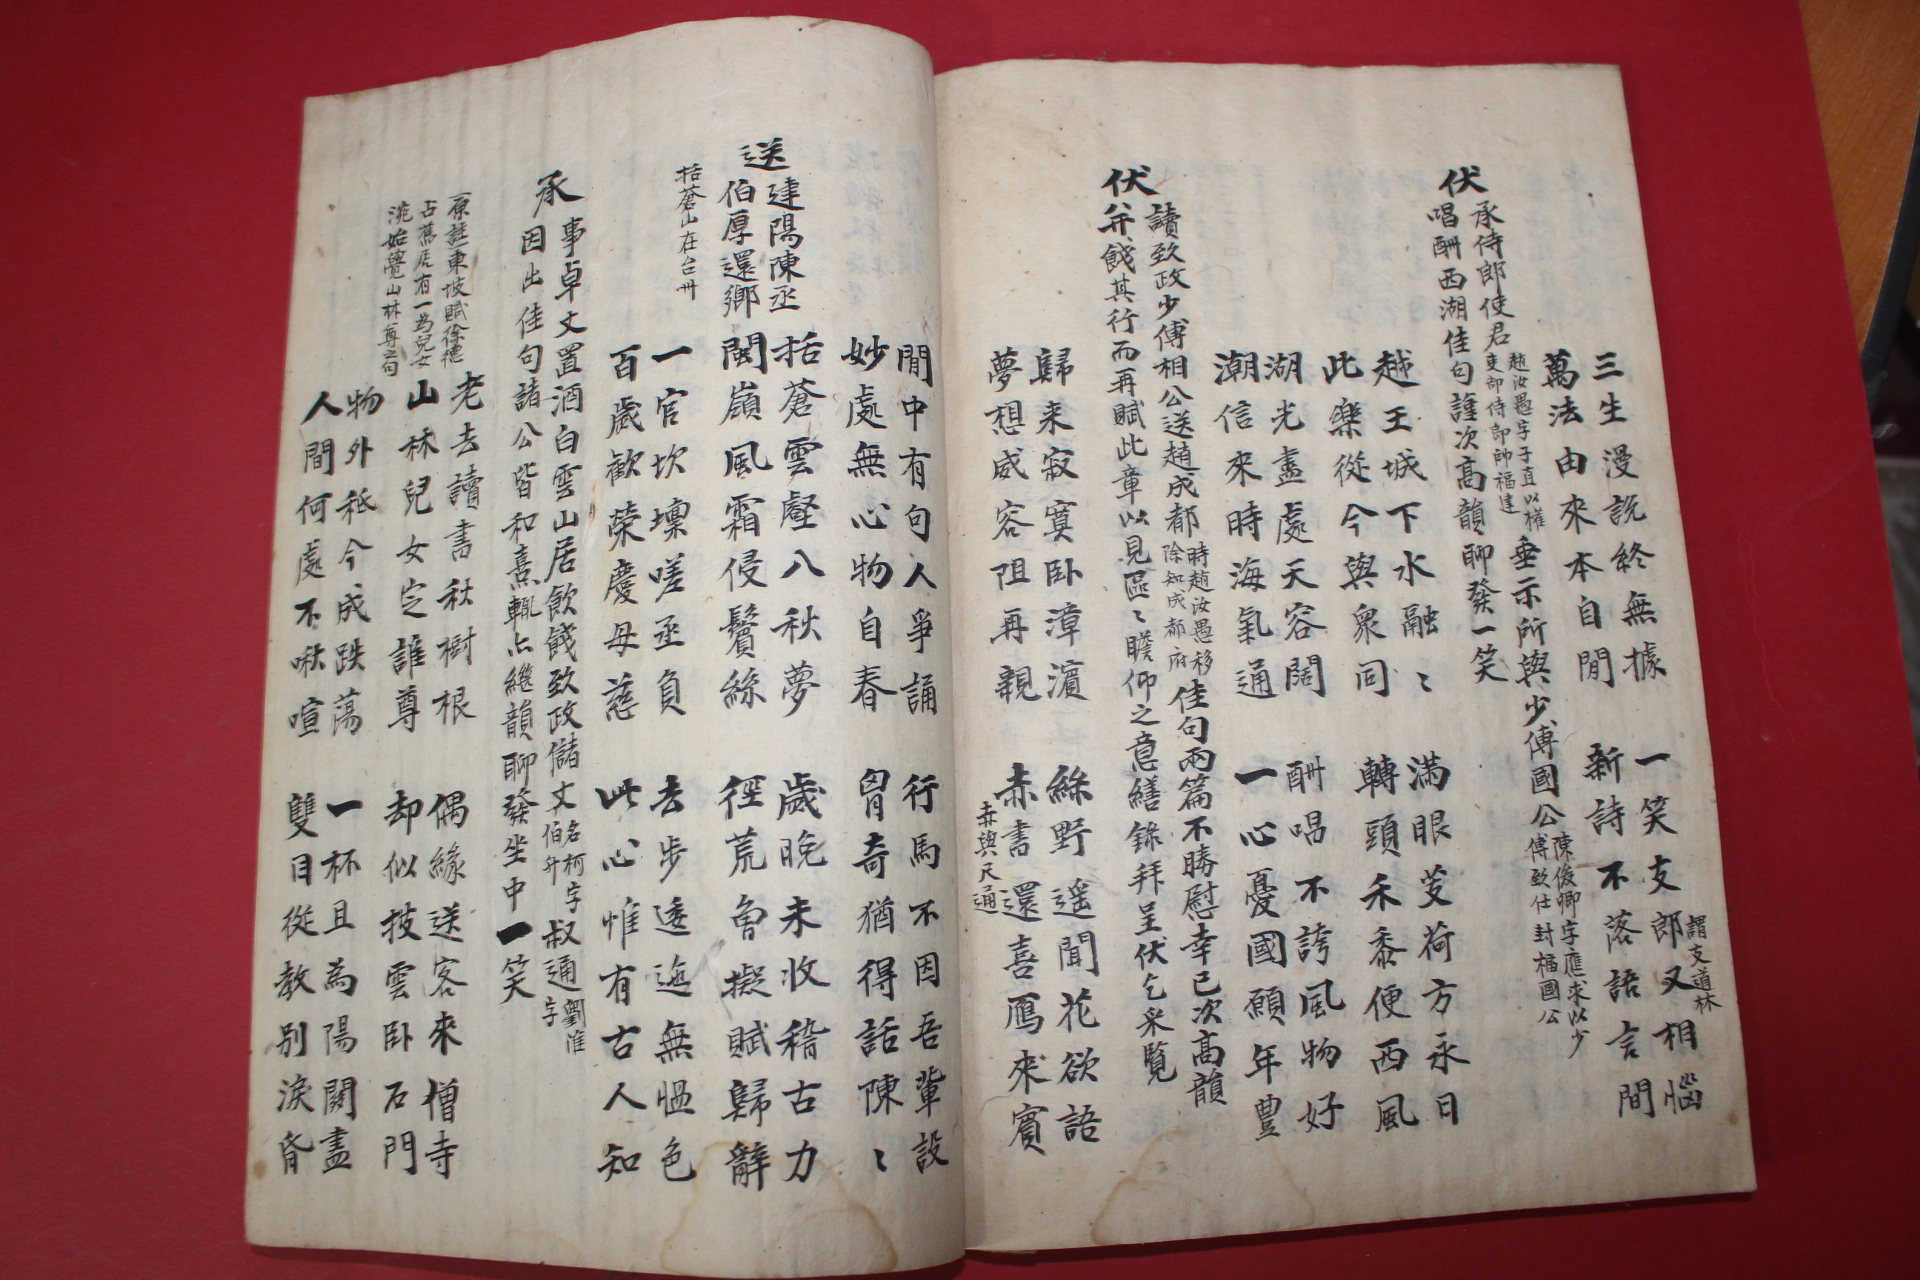 三生漫説終無據　一笑支郎又相惱
謂支道林
萬法由來本自閒　新詩不落語言間
伏承侍郎使君
趙汝愚字子直以權
吏部侍郎帥福建
垂示所與少傅國公
陳俊卿字應求以少
傅致仕封福國公
唱酬西湖佳句謹次高韻聊發一笑
越王城下水融〻　滿眼芰荷方永日
此樂從今與衆同　轉頭禾黍便西風
湖光盡處天容闊　酬唱不誇風物好
潮信來時海氣通　一心憂國願年豊
伏讀致政少傅相公送趙成都
時趙汝愚移
除知成都府
佳句兩篇不勝慰幸已次高韻
幷餞其行而再賦此章以見區〻瞻仰之意繕錄拜呈伏乞采覧
歸来寂寞卧漳濱　綠野遥聞花欲語
夢想威容阻再親　赤書還喜鴈來賓
赤與尺通
閒中有句人爭誦　行馬不因吾輩設
妙處無心物自春　胷奇猶得話陳〻
送建陽陳丞
伯厚還鄉
括蒼山在台州
括蒼雲壑八秋夢　歲晚未收稽古力
閩嶺風霜侵鬢絲　徑荒曾擬賦歸辭
一官坎壈嗟丞負　去步逶迤無慍色
百歲歡榮慶母慈　此心惟有古人知
承事卓丈置酒白雲山居飲餞致政儲丈
名柯字
伯升
叔通
劉淮
字
因出佳句諸公皆和熹輒亦繼韻聊發坐中一笑
原註東坡賦徐德
占舊居有一為兒女
洗始覺山林尊之句
老去讀書秋樹根　偶緣送客來僧寺
山林兒女定誰尊　却似披雲卧石門
物外秪今成跌蕩　一杯且為陽關盡
人間何處不啾喧　雙目從教別淚昏